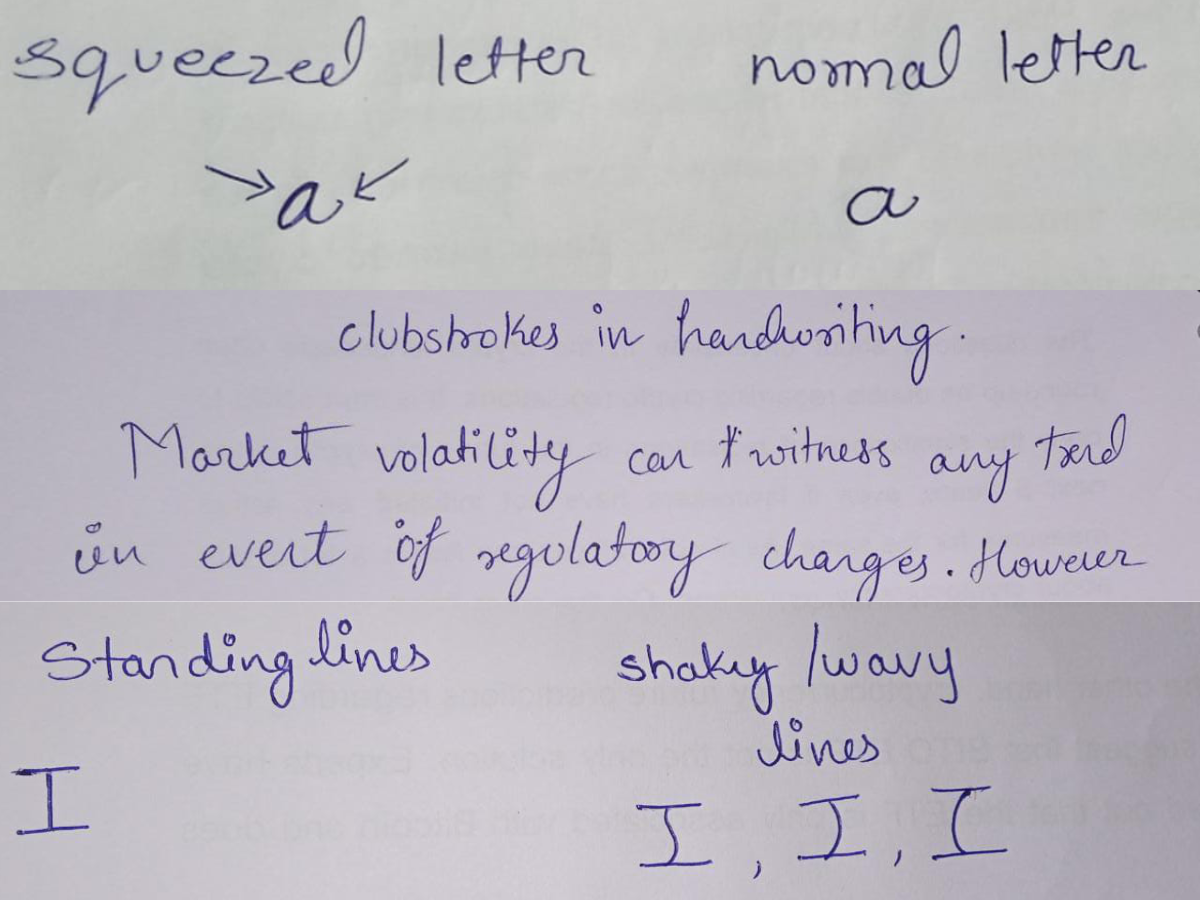 squeezed letter normal letter
a a
clubstrokes in handwriting.
Market volatility can witness any trend
in event of regulatory changes. However
Standing lines shaky/wavy
lines
I I, I, I